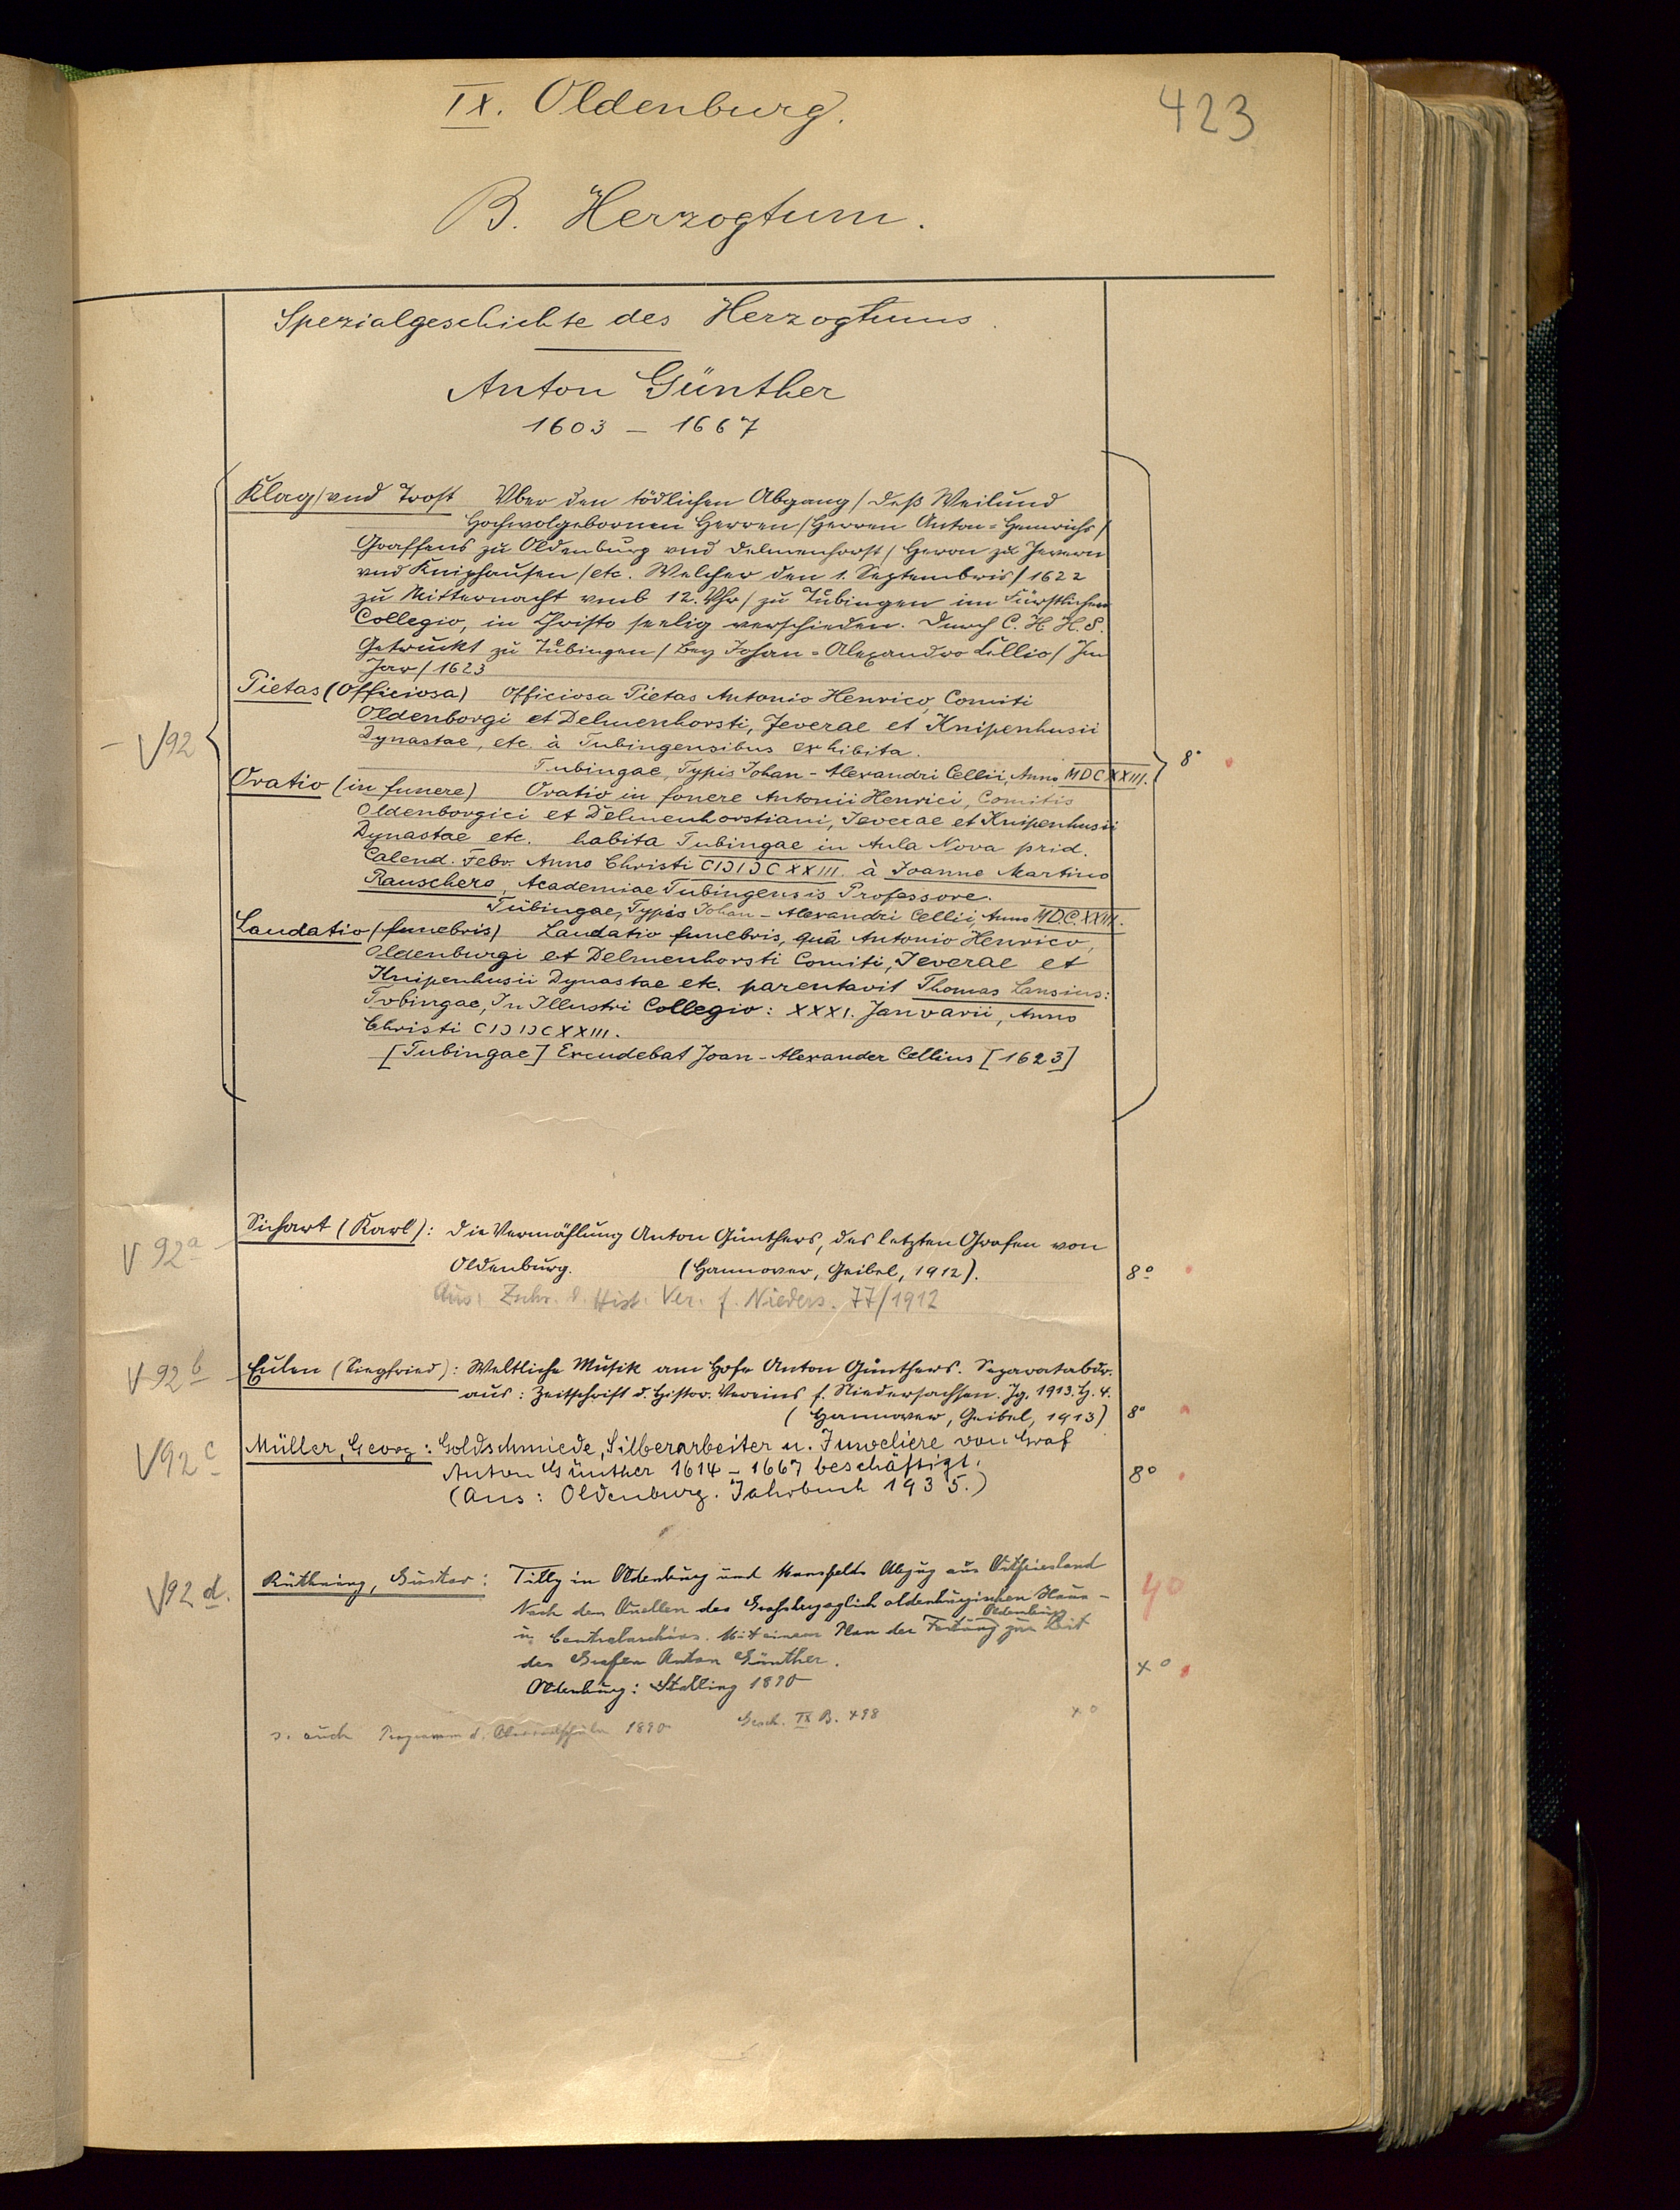 IX. Oldenburg.
423
B. Herzogtum.
Spezialgeschichte des Herzogtums.
Anton Günther
1603 - 1667
Klag / vnd Trost Vber den tödlichen Abgang / deß Weilund
Hochwolgebornen Herren / Herren Anton = Heinrichs /
Graffens zu Oldenburg vnd Delmenhorst / Herrn zu Jevern
vnd Kniphausen / etc. Welcher den 1. Septembris / 1622
zu Mitternacht vmb 12. Vhr / zu Tübingen im Fürstlichen
Collegio, in Christo seelig verschieden. Durch C. H. H. S.
Getruckt zu Tübingen / bey Johan = Alexandro Cellio / Im
Jar / 1623
Pietas (Officiosa) Officiosa Pietas Antonio Henrico, Comiti
Oldenborgi et Delmenhorsti, Jeverae et Knipenhusii
Dynastae, etc. à Tubingensibus exhibita.
V92
Tubingae, Typis Johan - Alexandri Cellii, Anno MDCXXIII.
8°
Oratio (in funere) Oratio in fonere Antonii Henrici, Comitis
Oldenborgici et Delmenhorstiani, Jeverae et Knipenhusii
Dynastae etc. habita Tubingae in Aula Nova prid.
Calend. Febr. Anno Christi CIƆIƆCXXIII. à Joanne Martino
Rauschero, Academiae Tubingensis Professore.
Tübingae, Typis Johan - Alexandri Cellii, Anno MDC.XXIII.
Laudatio (funebris) Laudatio funebris, quâ Antonio Henrico,
Oldenburgi et Delmenhorsti Comiti, Jeverae et
Knipenhusii Dynastae etc. parentavit Thomas Lansius:
Tvbingae, In Illustri Collegio: XXXI. Janvarii, Anno
Christi CIƆIƆCXXIII.
[Tubingae] Excudebat Joan - Alexander Cellius [1623]
V 92a
Sichart (Karl): Die Vermählung Anton Günthers, des letzten Grafen von
Oldenburg. (Hannover, Geibel, 1912).
8°
Aus: Zschr. d. Hist. Ver. f. Nieders. 77/1912
V 92b
Eulen (Siegfried): Weltliche Musik am Hofe Anton Günthers. Separatabdr.
aus: Zeitschrift d. Histor. Vereins f. Niedersachsen. Jg. 1913. H. 4.
(Hannover, Geibel, 1913)
8°
V92c
Müller, Georg: Goldschmiede, Silberarbeiter u. Juweliere von Graf
Anton Günther 1614 - 1667 beschäftigt.
(Aus: Oldenburg. Jahrbuch 1935.)
8°
V92 d.
Rüthning, Gustav: Tilly in Oldenburg und Mansfelds Abzug aus Ostfriesland
Nach den Quellen des Grossherzoglich oldenburgischen Haus-
40
u. Centralarchivs. Mit einem Plan der Festung Oldenburg zur Zeit
des Grafen Anton Günther.
Oldenburg: Stalling 1890
4°
s. auch Programm d. Oberrealschule 1890 Gesch. IX B. 498
4°